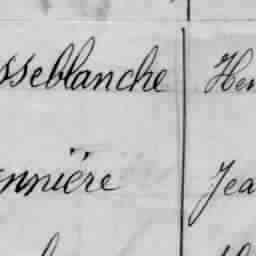 sseblanche Hen
nnière Jea